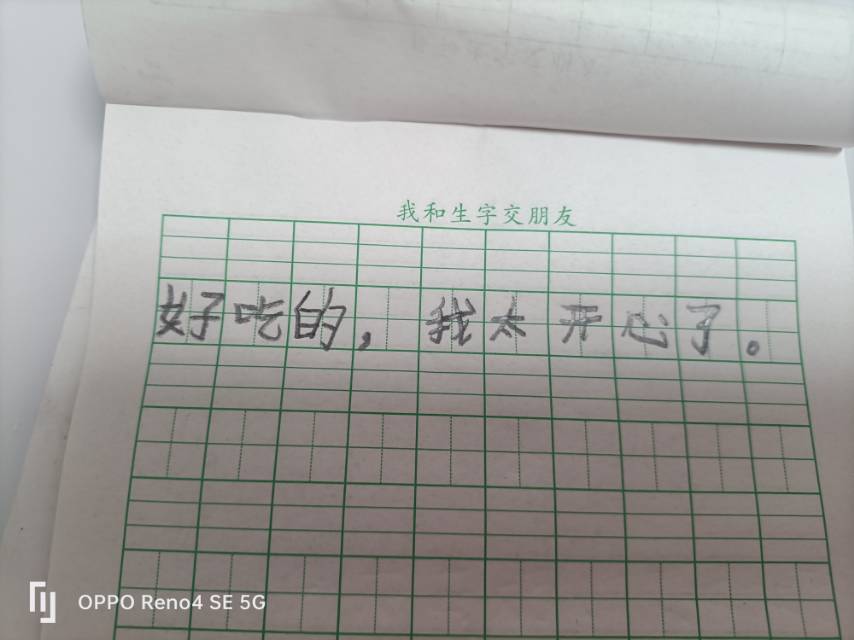 我和生字交朋友
好吃的，我太开心了。
OPPO Reno4 SE 5G